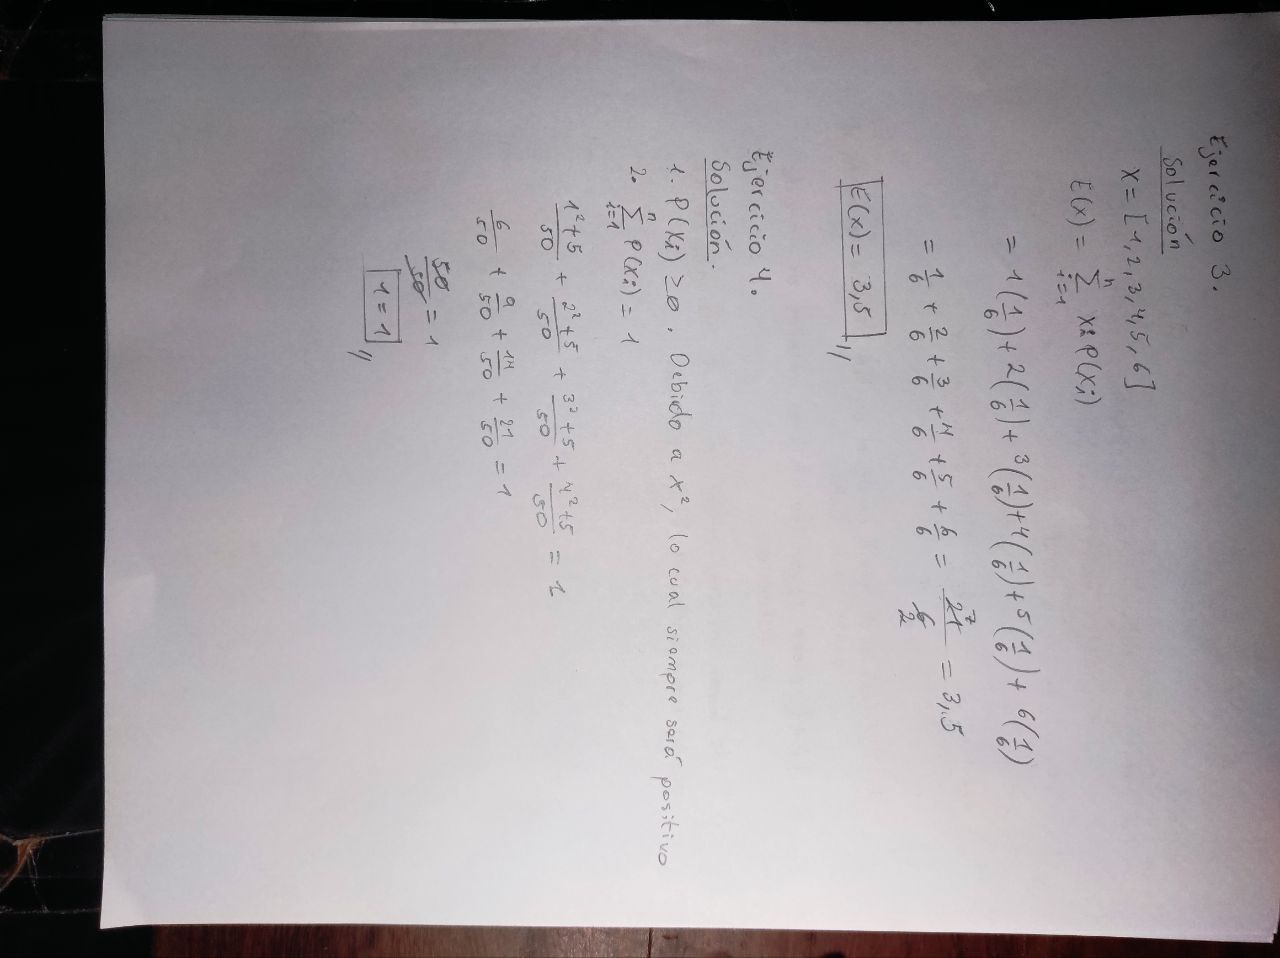 Ejercicio 3.
Solución
X = [1, 2, 3, 4, 5, 6]
E(x) = n∑i=1 xi P(xi)
= 1(1/6) + 2(1/6) + 3(1/6) + 4(1/6) + 5(1/6) + 6(1/6)
= 1/6 + 2/6 + 3/6 + 4/6 + 5/6 + 6/6 = 21/6 7/2 = 3,5
E(x) = 3,5 //
Ejercicio 4.
Solución.
1. P(xi) ≥ 0. Debido a x², lo cual siempre será positivo
2. n∑i=1 P(xi) = 1
1²+5/50 + 2²+5/50 + 3²+5/50 + 4²+5/50 = 1
6/50 + 9/50 + 14/50 + 21/50 = 1
50/50 = 1
1 = 1 //